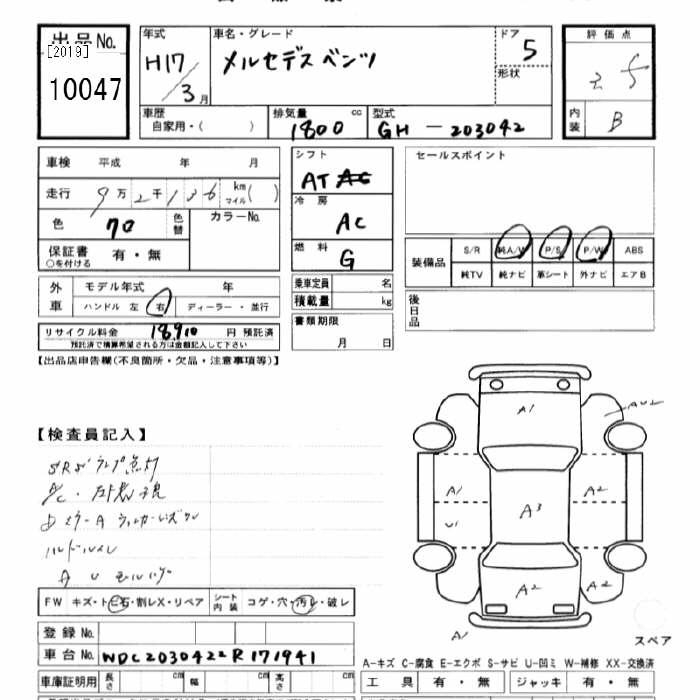 出品No.
[2019]
10047
年式 車名・グレード ドア 評価点
H17/3月 メルセデス ベンツ 5
形状
車歴 排気量 cc 型式 内装
自家用・( ) 1800 GH-203042 B
車検 平成 年 月 シフト セールスポイント
AT AC
走行 9万2千136 km マイル ( ) 冷房
AC
色 70 色替 カラーNo.
燃料
G
保証書 有・無
○を付ける
装備品 S/R 純A/W P/S P/W ABS
純TV 純ナビ 革シート 外ナビ エアB
外車 モデル年式 年 乗車定員 名
ハンドル 左 右 ディーラー・並行 積載量 kg
後日品
リサイクル料金 18,910 円 預託済
預託済で精算希望される方は金額記入して下さい
書類期限
月 日
【出品店申告欄(不良箇所・欠品・注意事項等)】
【検査員記入】
SRSランプ点灯
A1 AU2
A1 A3 A2
U1
A2 A2
A1
FW キズ・トビ石・割レX・リペア シート内装 コゲ・穴・汚レ・破レ
スペア
登録No.
車台No. WDC2030422R171941
A-キズ C-腐食 E-エクボ S-サビ U-凹ミ W-補修 XX-交換済
車庫証明用 長さ cm 幅 cm 高さ cm
工具 有・無 ジャッキ 有・無